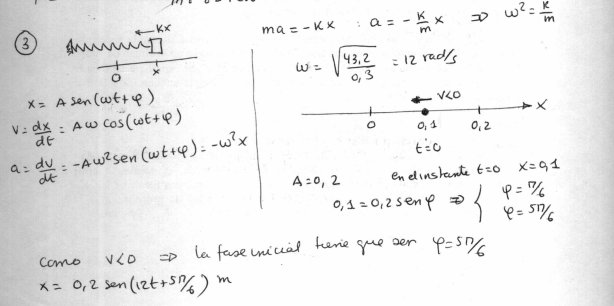 3
← Kx
0 x
x = A sen(ωt+φ)
v = dx/dt = Aω cos(ωt+φ)
a = dv/dt = -Aω² sen(ωt+φ) = -ω²x
ma = -Kx : a = -K/m x ⇒ ω² = K/m
ω = √(43,2/0,3) = 12 rad/s
← v<0
0 0,1 0,2 x
t=0
A=0,2 en el instante t=0 x=0,1
0,1=0,2 sen φ ⇒ { φ = π/6
φ = 5π/6
Como v<0 ⇒ la fase inicial tiene que ser φ=5π/6
x = 0,2 sen(12t+5π/6) m